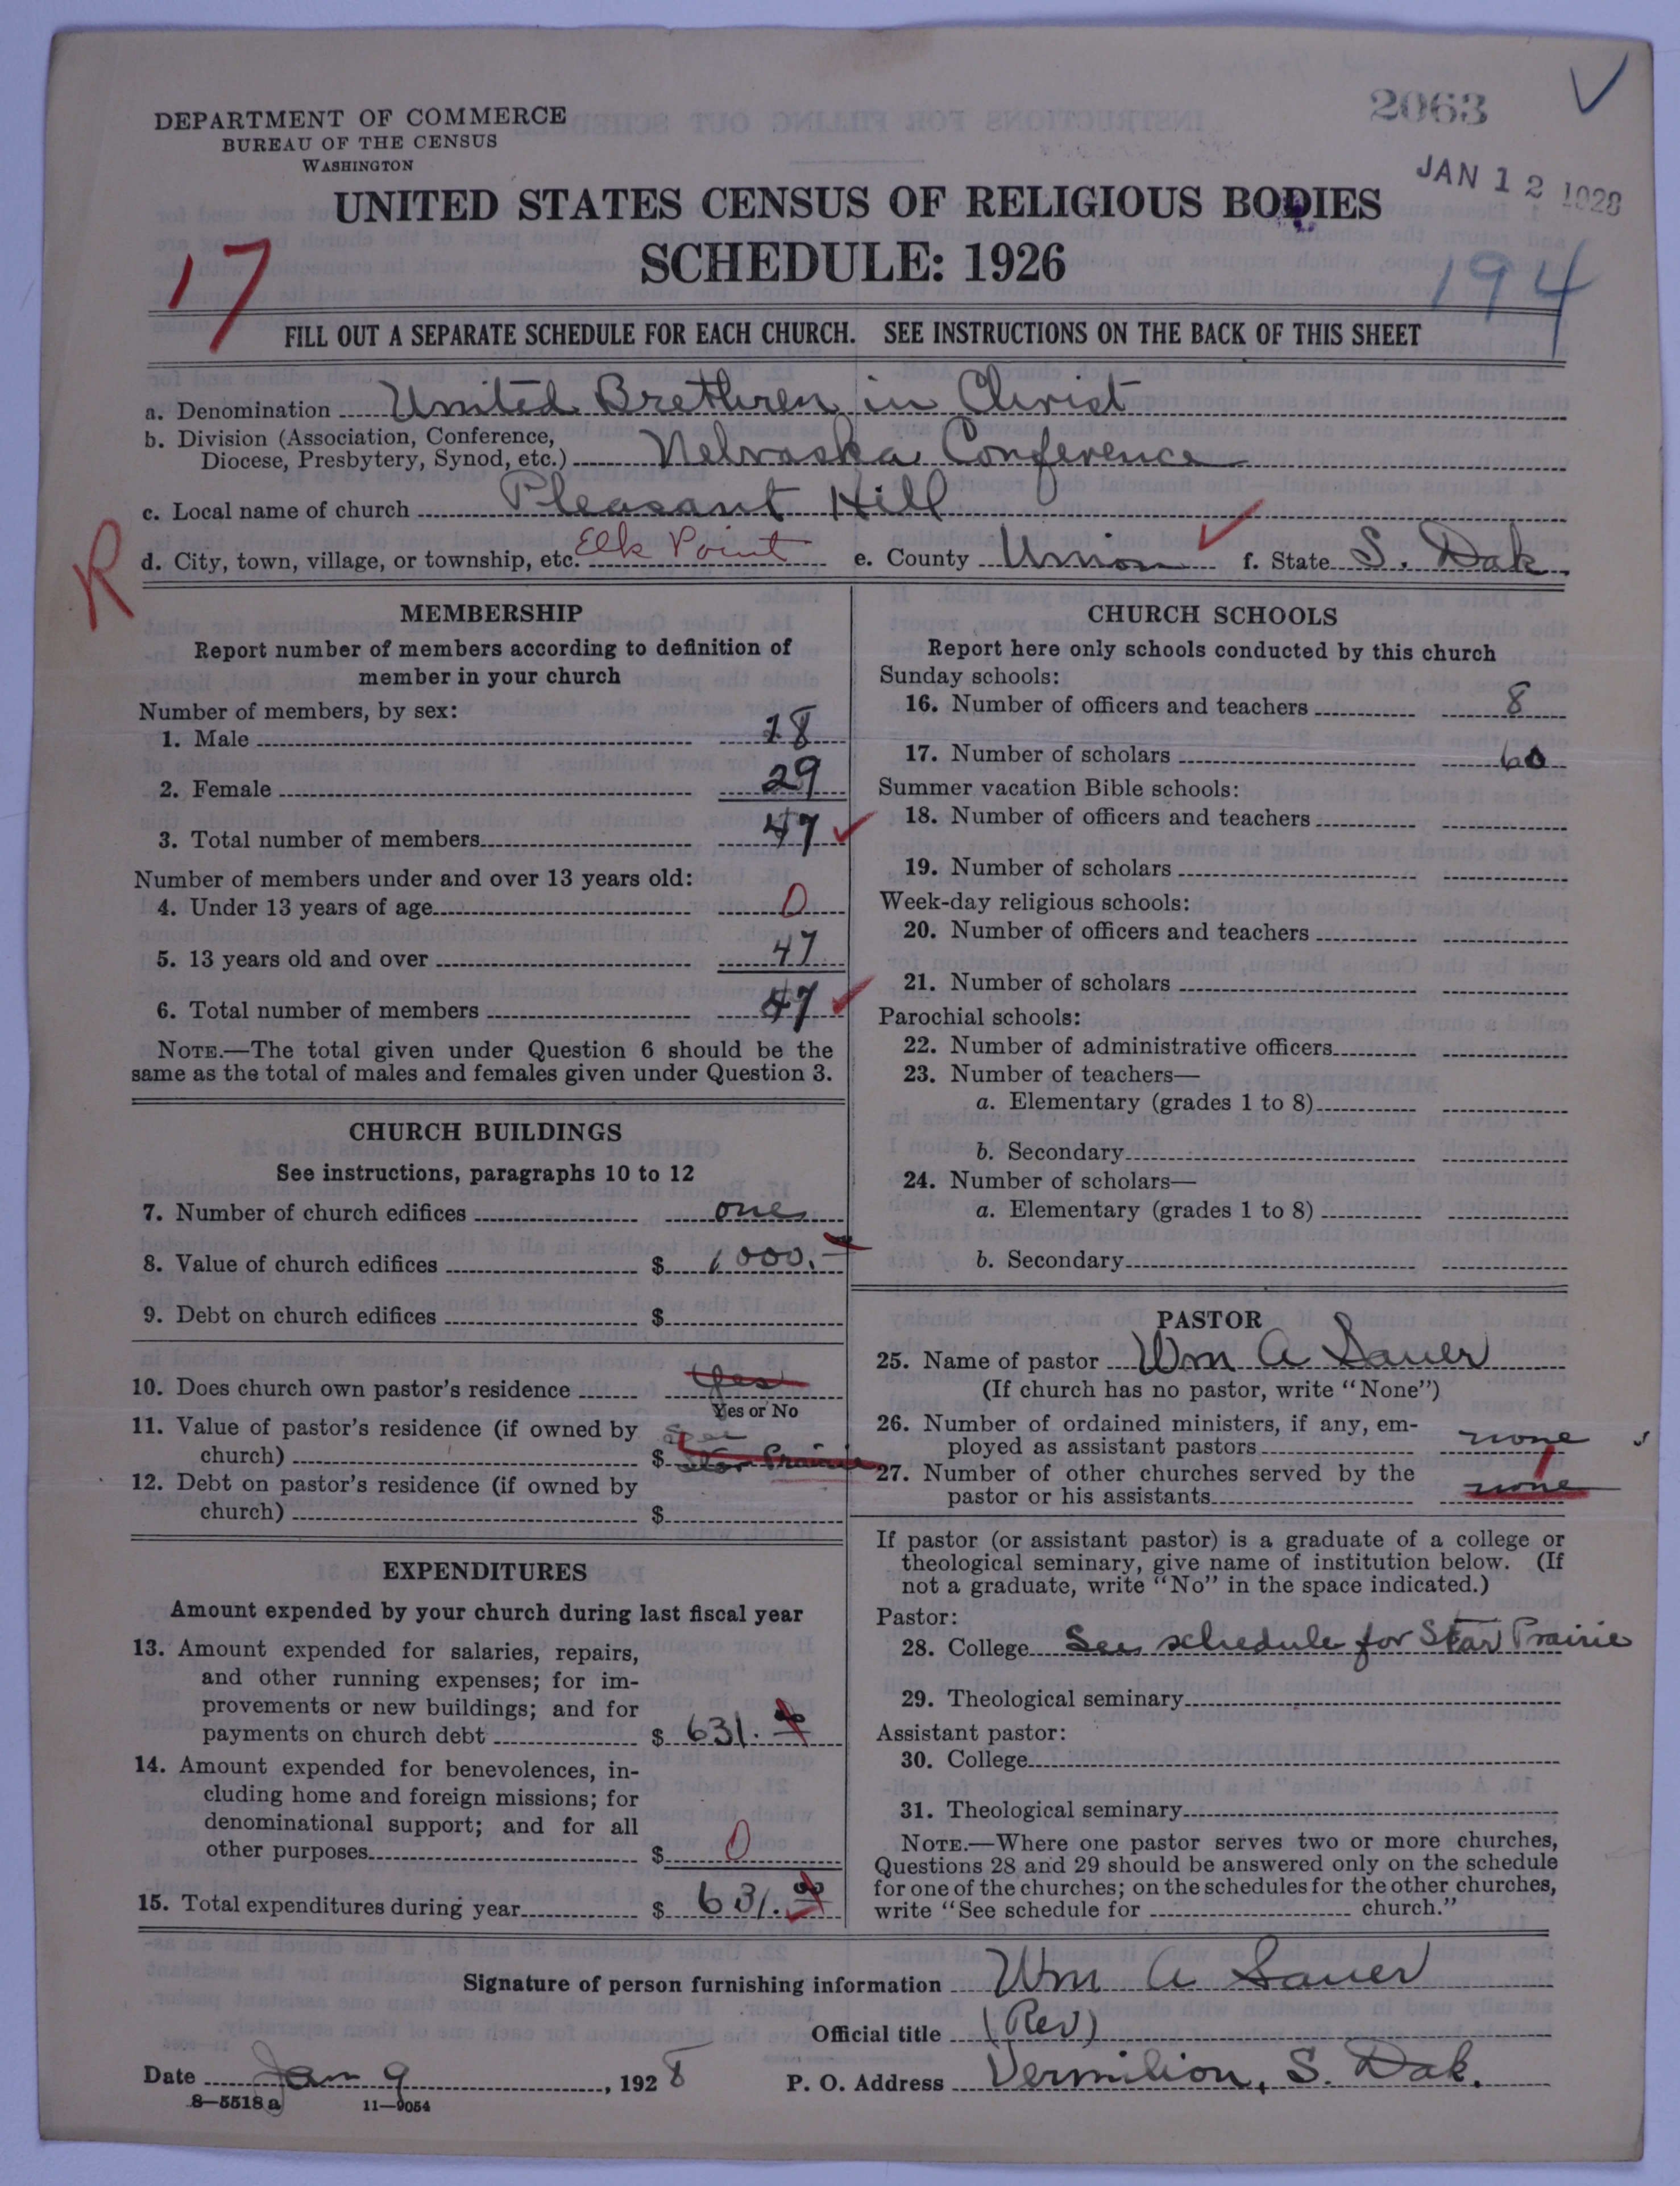 2063
JAN 12 1928
DEPARTMENT OF COMMERCE
BUREAU OF THE CENSUS
WASHINGTON
UNITED STATES CENSUS OF RELIGIOUS BODIES
SCHEDULE: 1926
17
194
FILL OUT A SEPARATE SCHEDULE FOR EACH CHURCH. SEE INSTRUCTIONS ON THE BACK OF THIS SHEET
a. Denomination United Brethren in Christ
b. Division (Association, Conference,
Diocese, Presbytery, Synod, etc.) Nebraska Conference
c. Local name of church Pleasant Hill
R
d. City, town, village, or township, etc. Elk Point e. County Union f. State S. Dak.
MEMBERSHIP
Report number of members according to definition of
member in your church
Number of members, by sex:
1. Male 18
2. Female 29
3. Total number of members 47
Number of members under and over 13 years old:
4. Under 13 years of age 0
5. 13 years old and over 47
6. Total number of members 47
NOTE.—The total given under Question 6 should be the
same as the total of males and females given under Question 3.
CHURCH BUILDINGS
See instructions, paragraphs 10 to 12
7. Number of church edifices one
8. Value of church edifices $ 1000.
9. Debt on church edifices $
10. Does church own pastor's residence Yes
Yes or No
11. Value of pastor's residence (if owned by
church) $ Star Prairie
12. Debt on pastor's residence (if owned by
church) $
EXPENDITURES
Amount expended by your church during last fiscal year
13. Amount expended for salaries, repairs,
and other running expenses; for im-
provements or new buildings; and for
payments on church debt $ 631.00
14. Amount expended for benevolences, in-
cluding home and foreign missions; for
denominational support; and for all
other purposes $ 0
15. Total expenditures during year $ 631.00
CHURCH SCHOOLS
Report here only schools conducted by this church
Sunday schools:
16. Number of officers and teachers 8
17. Number of scholars 60
Summer vacation Bible schools:
18. Number of officers and teachers
19. Number of scholars
Week-day religious schools:
20. Number of officers and teachers
21. Number of scholars
Parochial schools:
22. Number of administrative officers
23. Number of teachers—
a. Elementary (grades 1 to 8)
b. Secondary
24. Number of scholars—
a. Elementary (grades 1 to 8)
b. Secondary
PASTOR
25. Name of pastor Wm A Sauer
(If church has no pastor, write "None")
26. Number of ordained ministers, if any, em-
ployed as assistant pastors none
27. Number of other churches served by the
pastor or his assistants none 1
If pastor (or assistant pastor) is a graduate of a college or
theological seminary, give name of institution below. (If
not a graduate, write "No" in the space indicated.)
Pastor:
28. College See schedule for Star Prairie
29. Theological seminary
Assistant pastor:
30. College
31. Theological seminary
NOTE.—Where one pastor serves two or more churches,
Questions 28 and 29 should be answered only on the schedule
for one of the churches; on the schedules for the other churches,
write "See schedule for church."
Signature of person furnishing information Wm A Sauer
Official title (Rev)
Date Jan 9, 1928 P. O. Address Vermilion, S. Dak.
8—5518a 11—9054